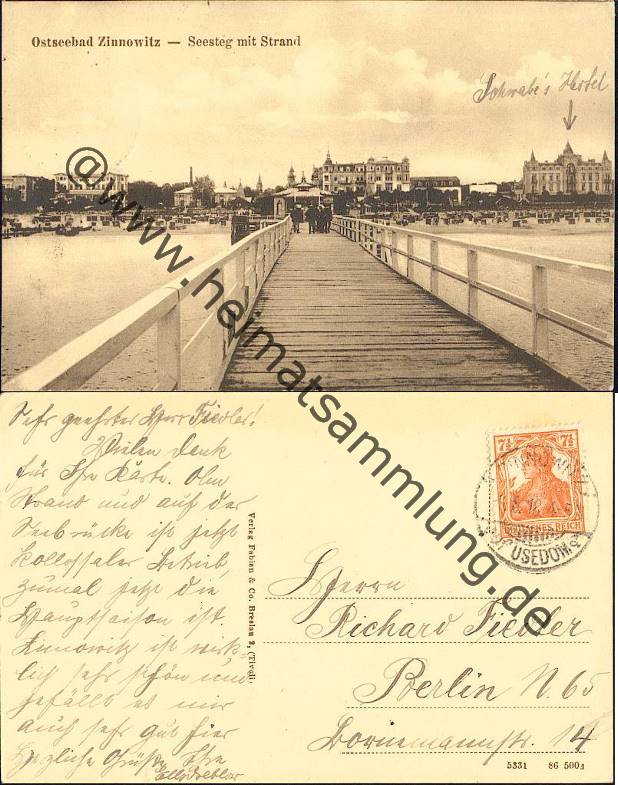 Ostseebad Zinnowitz — Seesteg mit Strand
Schwabe's Hotel
@www.heimatsammlung.de
Sehr geehrter Herr Fiedler!
Vielen Dank
für Ihre Karte. Am
Strand und auf der
Seebrücke ist jetzt
kollossaler Betrieb,
zumal jetzt die
Hauptsaison ist.
Zinnowitz ist wirk-
lich sehr schön und
gefällt es mir
auch sehr gut hier
Herzliche Grüße Ihre
Verlag Fabian & Co. Breslau 2, (Tivoli)
7½ 7½
DEUTSCHES REICH
USEDOM
Herrn
Richard Fiedler
Berlin N. 65
Bornemannstr. 14
5331 86 500